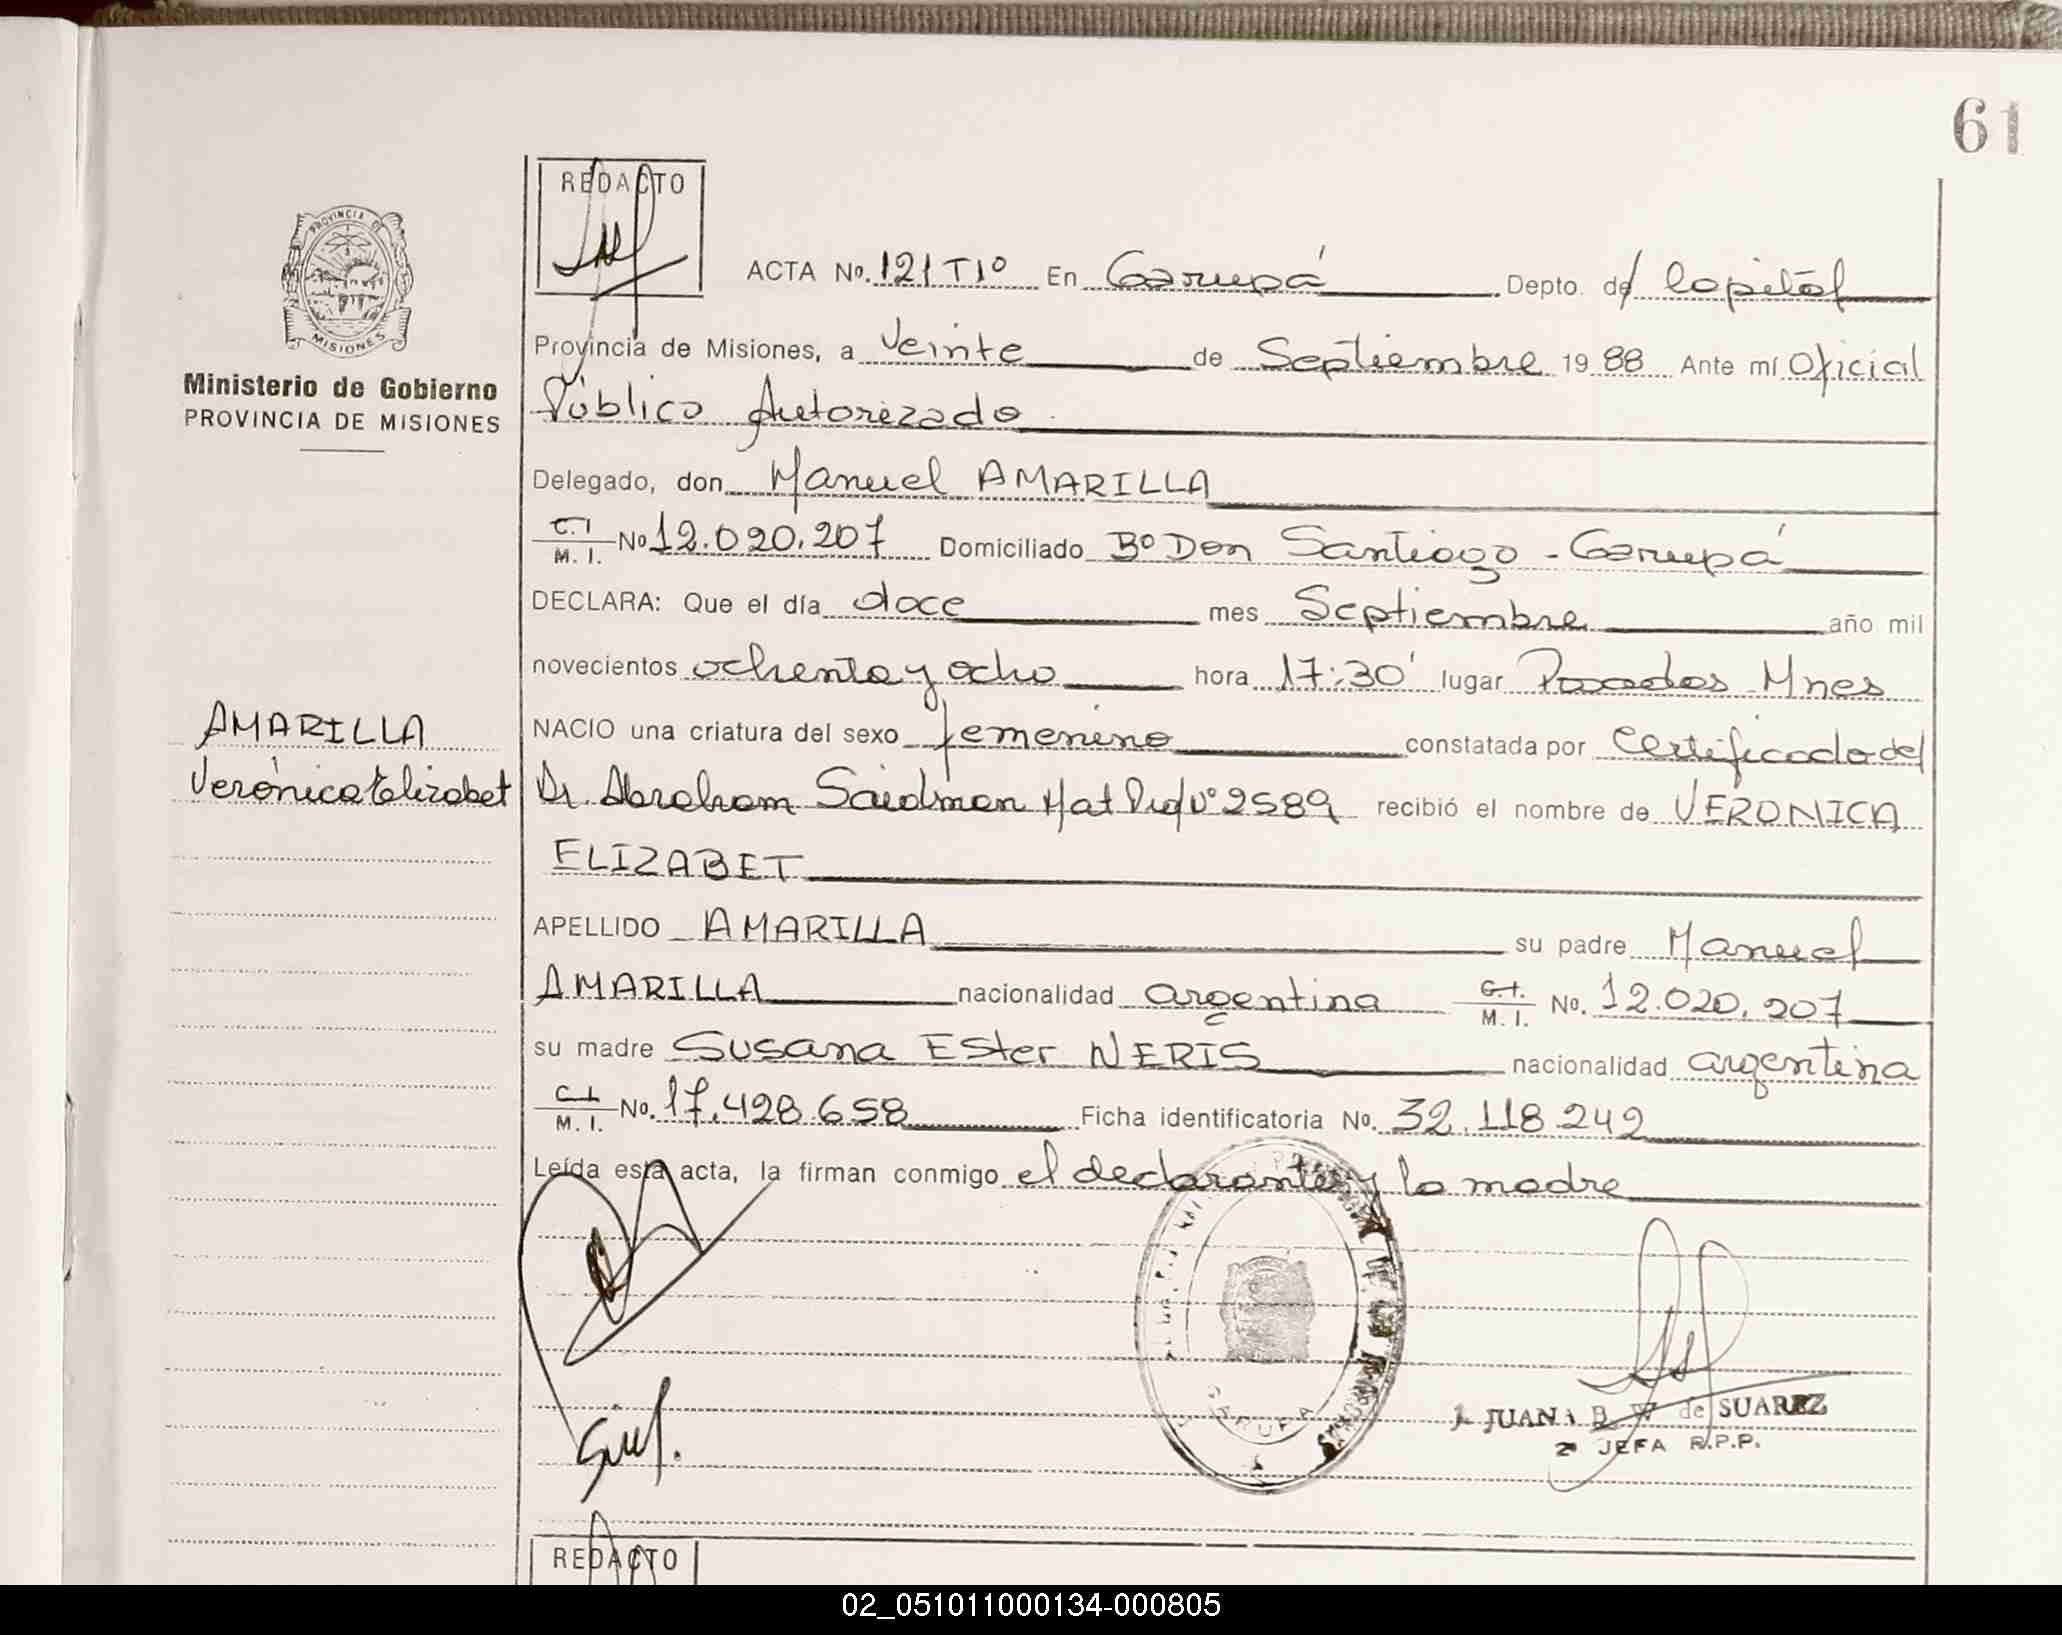 61
REDACTO
PROVINCIA DE
MISIONES
Ministerio de Gobierno
PROVINCIA DE MISIONES
ACTA No. 121 T1º En Garupá Depto. de Capital
Provincia de Misiones, a Veinte de Septiembre 1988 Ante mí Oficial
Público Autorizado
Delegado, don Manuel AMARILLA
C.I. M. I. No 12.020.207 Domiciliado Bº Don Santiago - Garupá
DECLARA: Que el día doce mes Septiembre año mil
novecientos ochenta y ocho hora 17:30' lugar Posadas Mnes
NACIO una criatura del sexo femenino constatada por Certificado del
Dr. Abraham Saidman Mat Prof Nº 2589 recibió el nombre de VERONICA
ELIZABET
AMARILLA
Verónica Elizabet
APELLIDO AMARILLA su padre Manuel
AMARILLA nacionalidad argentina C.I. M. I. No. 12.020.207
su madre Susana Ester NERIS nacionalidad argentina
C.I. M. I. No. 17.428.658 Ficha identificatoria No. 32.118.242
Leída esta acta, la firman conmigo el declarante y la madre
GARUPA
JUANA B. W de SUAREZ
2ª JEFA R.P.P.
REDACTO
02_051011000134-000805